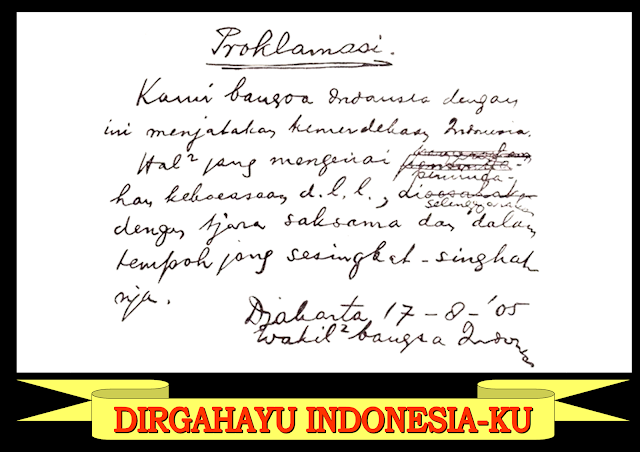 Proklamasi.
Kami bangsa Indonesia dengan
ini menjatakan kemerdekaan Indonesia.
Hal² jang mengenai
peminda-
han kekoeasaan d.l.l., di
selenggarakan
dengan tjara saksama dan dalam
tempoh jang sesingkat-singkat
nja.
Djakarta 17-8-'05
Wakil² bangsa Indonesia
DIRGAHAYU INDONESIA-KU